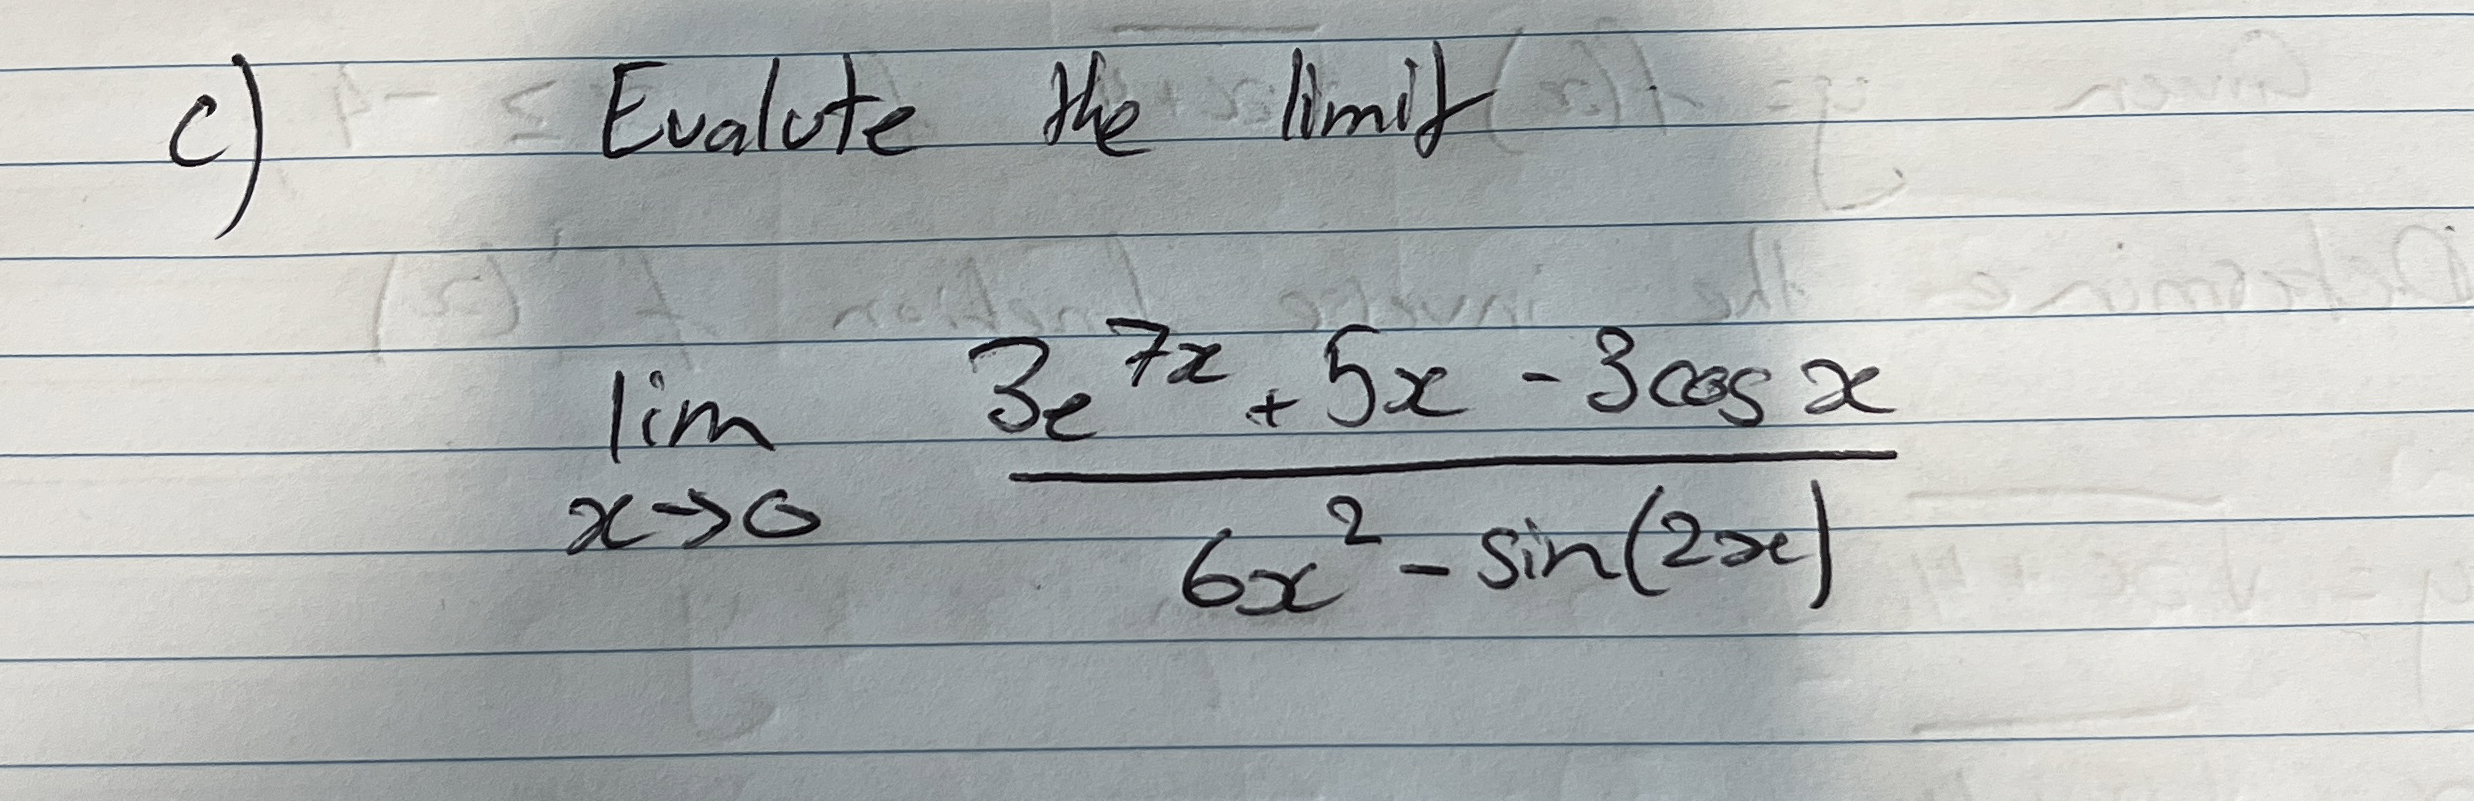 c) Evalute the limit
lim x→0 (3e^{7x} + 5x - 3cos x) / (6x^2 - sin(2x))